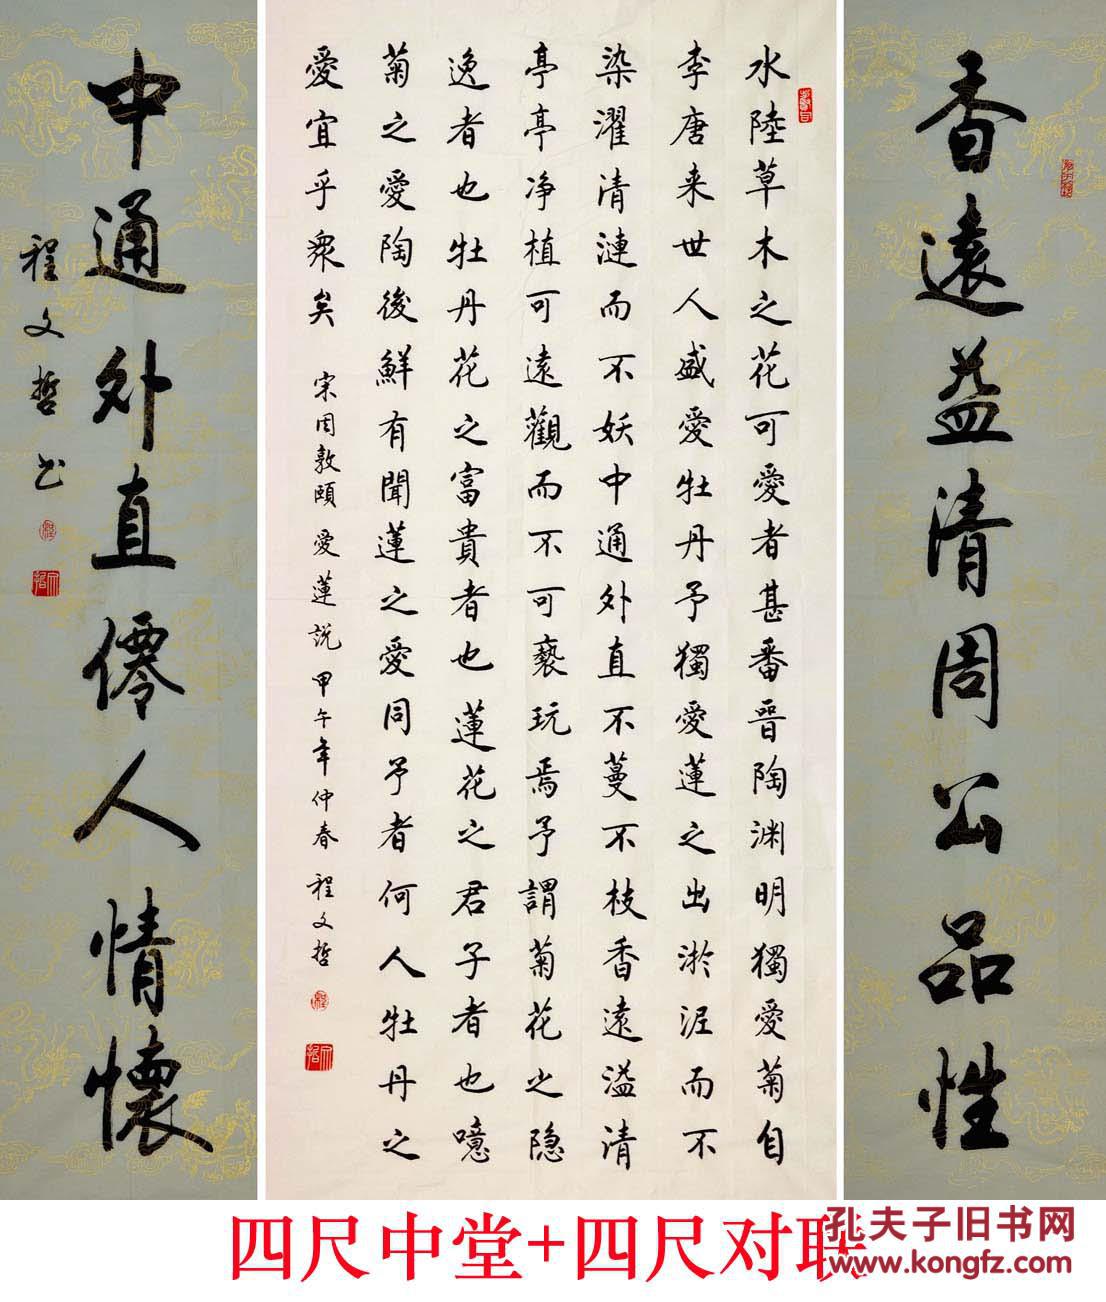 香遠益清周公品性
水陸草木之花可愛者甚番晉陶渊明獨愛菊自
李唐来世人盛愛牡丹予獨愛蓮之出淤泥而不
染濯清漣而不妖中通外直不蔓不枝香遠溢清
亭亭净植可遠觀而不可褻玩焉予謂菊花之隐
逸者也牡丹花之富貴者也蓮花之君子者也噫
菊之愛陶後鮮有聞蓮之愛同予者何人牡丹之
愛宜乎衆矣 宋周敦頤 愛蓮説 甲午年仲春 程文哲
中通外直僊人情懷
程文哲书
四尺中堂+四尺对联
孔夫子旧书网
www.kongfz.com